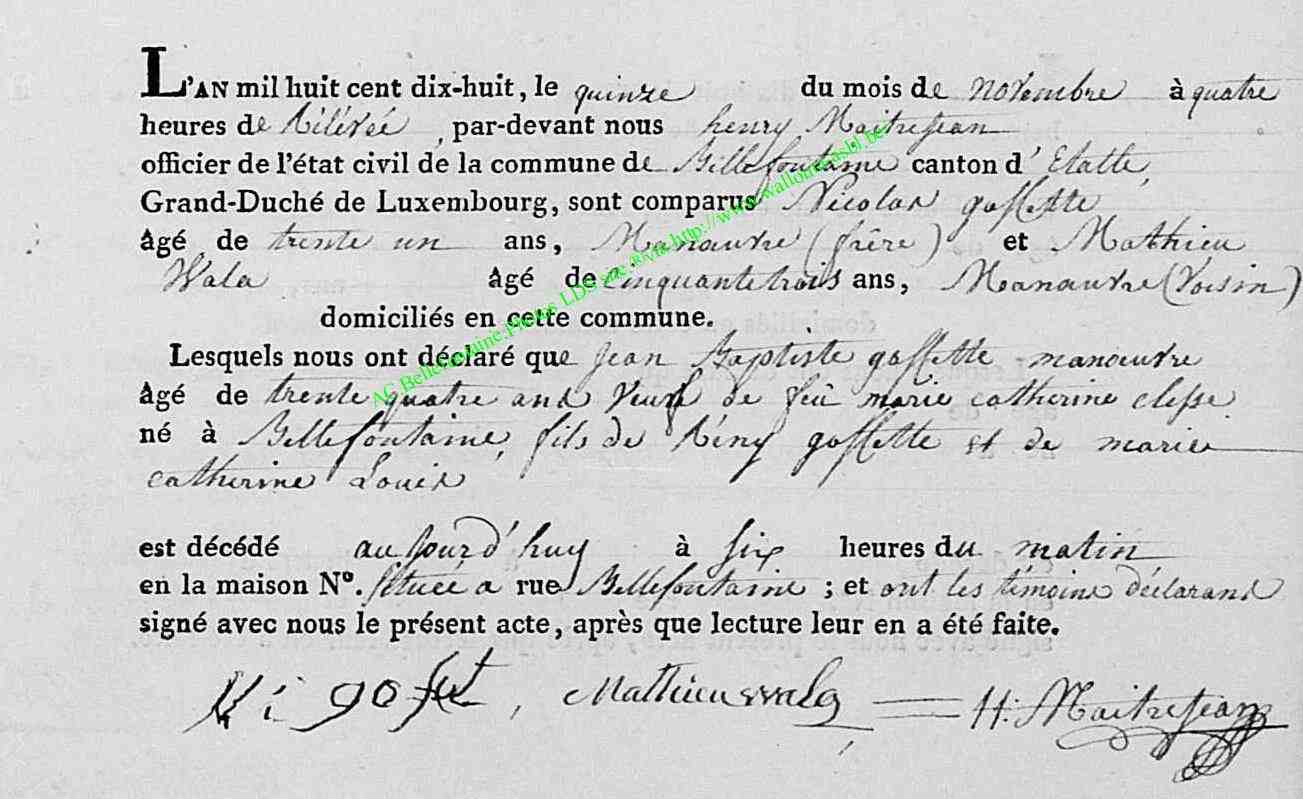 L'AN mil huit cent dix-huit, le quinze du mois de novembre à quatre
heures de Rélévée, par-devant nous henry Maitrejean
officier de l'état civil de la commune de Bellefontaine canton d'Etalle,
Grand-Duché de Luxembourg, sont comparus Nicolas gossette
âgé de trente un ans, Manœuvre (frère) et Mathieu
Wala âgé de cinquante trois ans, Manœuvre (Voisin)
domiciliés en cette commune.
Lesquels nous ont déclaré que Jean Baptiste gossette manœuvre
âgé de trente quatre ans Veuf de feü marie catherine clesse
né à Bellefontaine, fils de Rémy gossette et de marie
catherine Louis
est décédé aujourd'huy à six heures du matin
en la maison N°. située a rue Bellefontaine ; et ont les témoins déclarans
signé avec nous le présent acte, après que lecture leur en a été faite.
gosset, Mathieu wala H: Maitrejean
AC Bellefontaine.Photos LDS site ®via http://www.wallonia asbl.be/